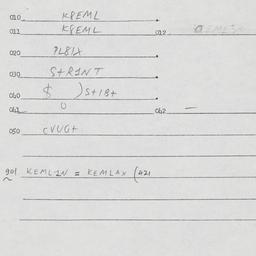 010 KREML
011 KREML 012
020 PLBIX
030 S+R1NT
040 $ )S+18+
041 0 042 —
050 CVUG+
901 KEML-IN = KEMLAX (421